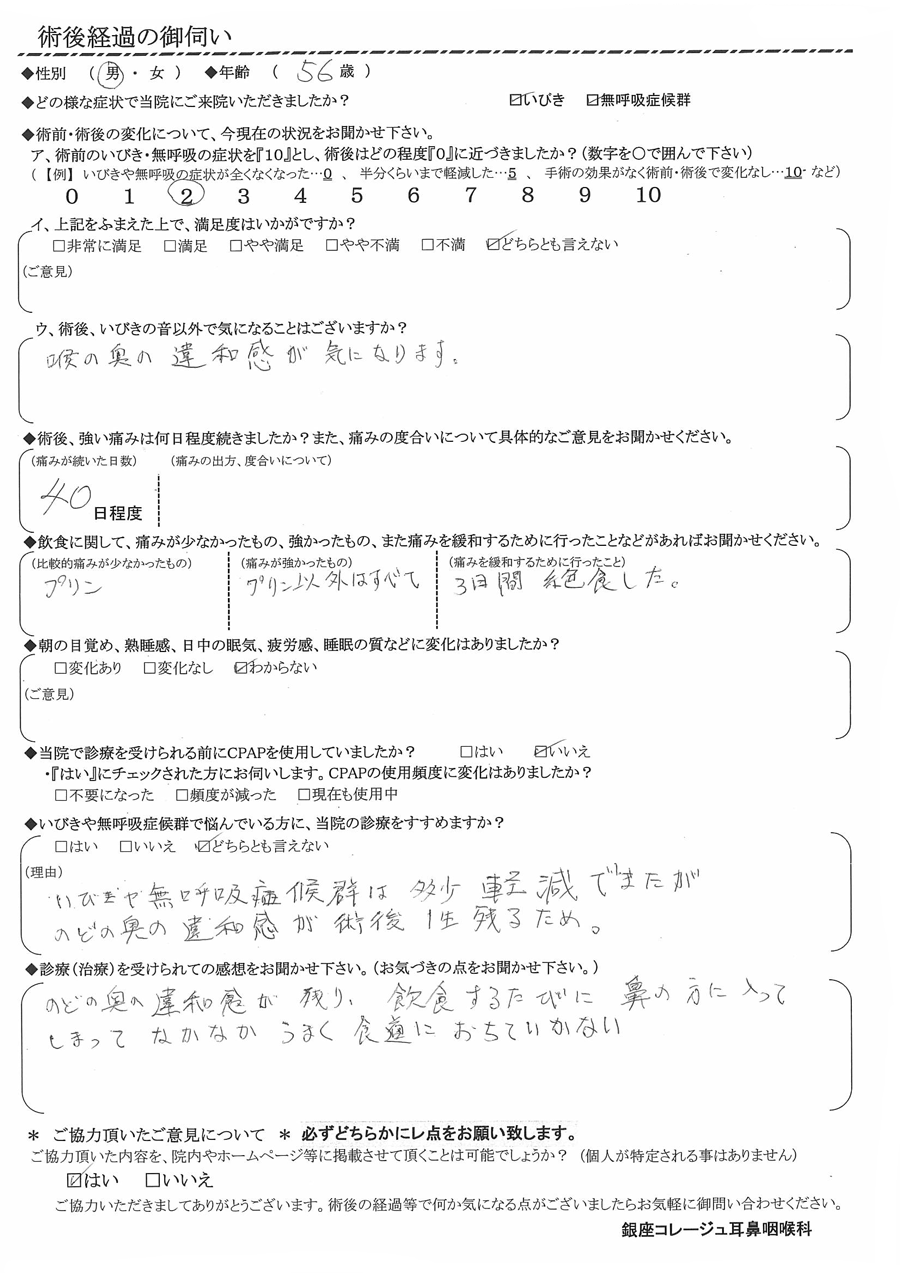 術後経過の御伺い
◆性別 (男・女) ◆年齢 (56歳)
◆どの様な症状で当院にご来院いただきましたか? ☑いびき ☑無呼吸症候群
◆術前・術後の変化について、今現在の状況をお聞かせ下さい。
ア、術前のいびき・無呼吸の症状を『10』とし、術後はどの程度『0』に近づきましたか?(数字を○で囲んで下さい)
(【例】いびきや無呼吸の症状が全くなくなった…0 、 半分くらいまで軽減した…5 、 手術の効果がなく術前・術後で変化なし…10 など)
0 1 2 3 4 5 6 7 8 9 10
イ、上記をふまえた上で、満足度はいかがですか?
□非常に満足 □満足 □やや満足 □やや不満 □不満 ☑どちらとも言えない
(ご意見)
ウ、術後、いびきの音以外で気になることはございますか?
喉の奥の違和感が気になります。
◆術後、強い痛みは何日程度続きましたか?また、痛みの度合いについて具体的なご意見をお聞かせください。
(痛みが続いた日数) (痛みの出方、度合いについて)
40日程度
◆飲食に関して、痛みが少なかったもの、強かったもの、また痛みを緩和するために行ったことなどがあればお聞かせください。
(比較的痛みが少なかったもの) (痛みが強かったもの) (痛みを緩和するために行ったこと)
プリン プリン以外はすべて 3日間絶食した。
◆朝の目覚め、熟睡感、日中の眠気、疲労感、睡眠の質などに変化はありましたか?
□変化あり □変化なし ☑わからない
(ご意見)
◆当院で診療を受けられる前にCPAPを使用していましたか? □はい ☑いいえ
・『はい』にチェックされた方にお伺いします。CPAPの使用頻度に変化はありましたか?
□不要になった □頻度が減った □現在も使用中
◆いびきや無呼吸症候群で悩んでいる方に、当院の診療をすすめますか?
□はい □いいえ ☑どちらとも言えない
(理由)
いびきや無呼吸症候群は多少軽減できたが
のどの奥の違和感が術後1生残るため。
◆診療(治療)を受けられての感想をお聞かせ下さい。(お気づきの点をお聞かせ下さい。)
のどの奥の違和感が残り、飲食するたびに鼻の方に入って
しまってなかなかうまく食道におちていかない
＊ ご協力頂いたご意見について ＊ 必ずどちらかにレ点をお願い致します。
ご協力頂いた内容を、院内やホームページ等に掲載させて頂くことは可能でしょうか? (個人が特定される事はありません)
☑はい □いいえ
ご協力いただきましてありがとうございます。術後の経過等で何か気になる点がございましたらお気軽に御問い合わせください。
銀座コレージュ耳鼻咽喉科